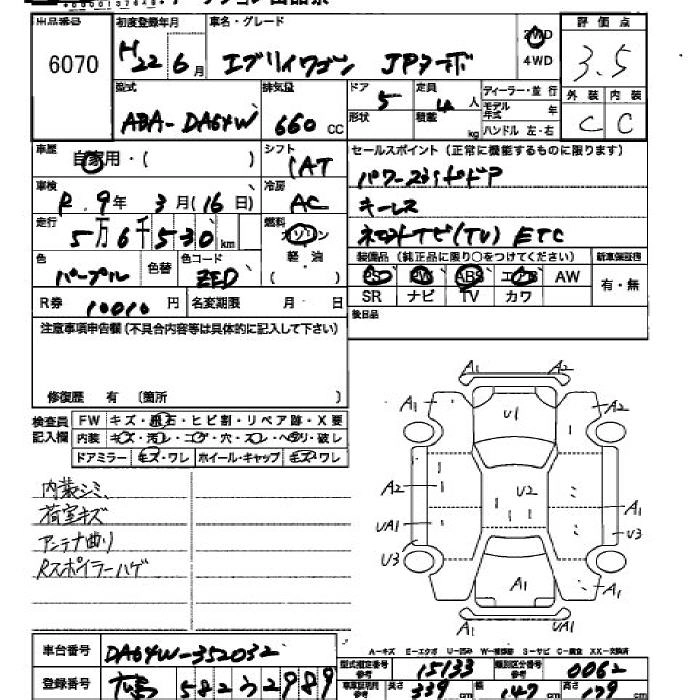 出品番号
6070
初度登録年月
H22 6月
車名・グレード
エブリイワゴン JPターボ
2WD
4WD
評価点
3.5
型式
ABA-DA64W
排気量
660 CC
ドア 5
形状
定員 4人
積載 kg
ディーラー・並行
モデル年式 年
ハンドル 左・右
外装 内装
C C
車歴
自家用・( )
シフト
AT
セールスポイント(正常に機能するものに限ります)
パワースライドドア
キーレス
TV(TV) ETC
車検
R.9年 3月(16日)
冷房
AC
走行
5万6千530km
燃料
ガソリン
軽油
( )
色
パープル
色替
色コード
ZED
装備品(純正品に限り○をつけてください)
新車保証書
PS PW ABS エアB AW
SR ナビ TV カワ
有・無
R券 10010円
名変期限 月 日
後日品
注意事項申告欄(不具合内容等は具体的に記入して下さい)
修復歴 有 〔箇所 〕
検査員記入欄
FW キズ・飛石・ヒビ割・リペア跡・X要
内装 キズ・汚レ・コゲ・穴・スレ・ヘタリ・破レ
ドアミラー キズ・ワレ ホイール・キャップ キズ・ワレ
内装シミ、
荷室キズ
アンテナ曲り
Rスポイラーハゲ
A1 A2
A1 A2
U1
A2 U2 A1
UA1 U3
U3
A1 A1
UA1
A-キズ E-エクボ U-凹み W-補修跡 S-サビ C-腐食 XX-交換済
車台番号
DA64W-352032
型式指定番号 参考
15133
類別区分番号 参考
0062
登録番号
582 2989
長さ 339cm 幅 147cm 高さ